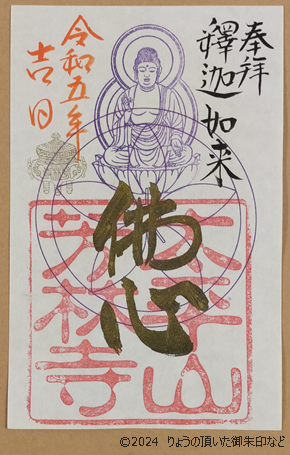 奉拝
釋迦如来
佛心
太平山
芳林寺
令和五年
吉日
©2024 りょうの頂いた御朱印など